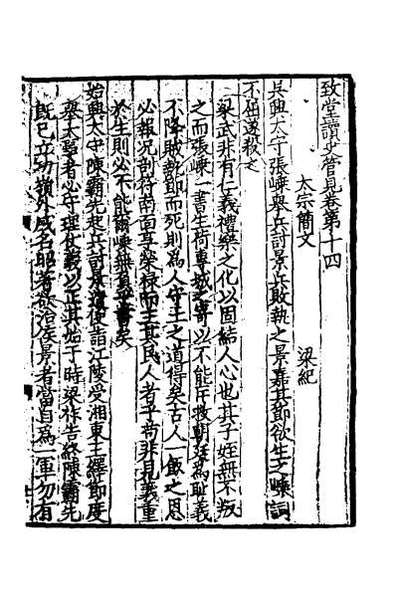 致堂讀史管見卷第十四
太宗簡文　梁紀
吳興太守張嵊舉兵討景兵敗執之景嘉其節欲生之嵊詞
不屈遂殺之
梁武非有仁義禮樂之化以固結人心也其子姪無不叛
之而張嵊一書生荷專城之寄以不能斥救朝廷為耻義
不降賊就郎而死則為人守土之道得矣古人一飯之恩
必報况剖符南面享榮祿而主其民人者乎苟非見義重
於生則必不能爾嵊無負書矣
始興太守陳霸先起兵討景遣使詣江陵受湘東王繹節度
舉大器者必守理仗義以正其始于時梁祚告終陳霸先
既已立功嶺外威名昭著欲治侯景者當自為一軍勿有